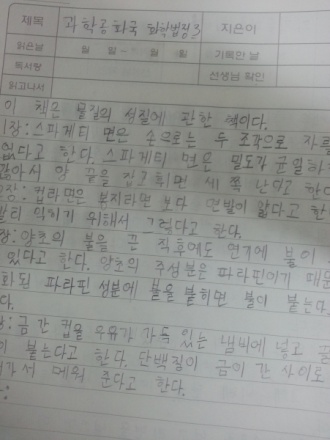 제목 과학공화국 화학법정3 지은이
읽은날 월 일 - 월 일 기록한 날
독서량 선생님 확인
읽고나서
이 책은 물질의 성질에 관한 책이다.
장:스파게티 면은 손으로는 두 조각으로 자를
없다고 한다. 스파게티 면은 밀도가 균일하
않아서 양 끝을 잡고 휘면 세 쪽 난다고 한
장:컵라면은 봉지라면 보다 면발이 얇다고 한
빨리 익히기 위해서 그렇다고 한다.
장:양초의 불을 끈 직후에도 연기에 불이
있다고 한다. 양초의 주성분은 파라핀이기 때문
화된 파라핀 성분에 불을 붙히면 불이 붙는다
다.
:금 간 컵을 우유가 가득 있는 냄비에 넣고
이 붙는다고 한다. 단백질이 금이 간 사이로
가서 메워 준다고 한다.
: